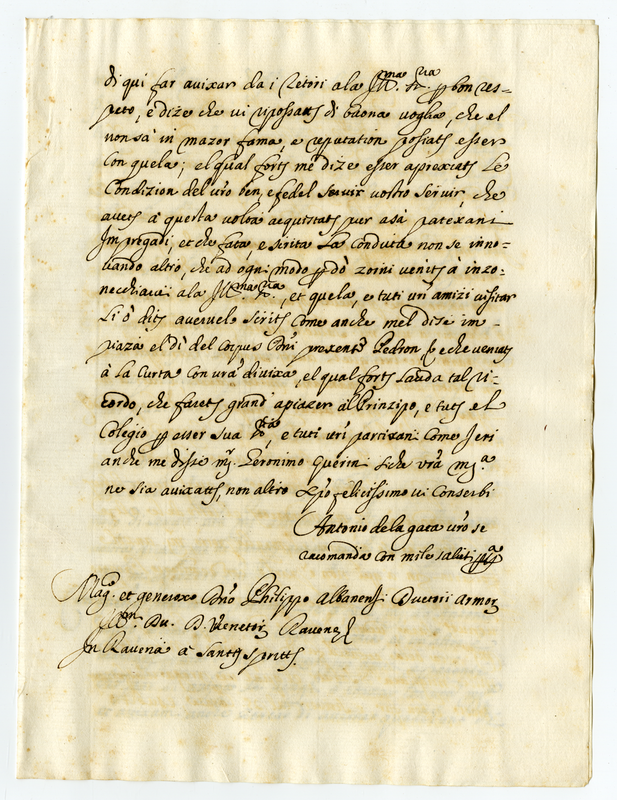 di qui far avixar da i Retori a la Ill.ma S.ria p bon res-
peto, e dize che vi ripossatts di buona voglia, che el
non sa in mazor fama, e reputation possiats esser
con quela; el qual forts me dize esser aprexiats Le
Condizion del vro ben, e fedel servir vostro servir, che
avets à questa volta aequistats per asà patexani
Impregadi, et che fata, e scrita La Conduta non se inno-
vando altro, che ad ogni modo p do zorni venits à inzo-
necchiavi ala Ill.ma S.ria, et quela, e tuti vri amizi visitar
Li ò dits avervele scrits come anche mel dise in
piaza el dì del Corpus Dni prexents Pedron, che veniats
à La Curta con vra divixa, el qual forts Lauda tal ri-
cordo, che farets grand apiazer al Prinzipo, e tuts el
Colegio p esser sua, e tuti vtri partixani Come Jeri
anche me disse mj. Jeronimo Querin; sichè vra m.a
ne sia avixatts, non altro Xpo felicissimo vi Conserbi
Antonio dela gata vro se
racomanda con mile saluti
Mag.co et generoxo Dno Philippo Albanensi Ductori Armor
Ill. Du. D. Venetor Ravene
In Ravena à Santts Spritts.